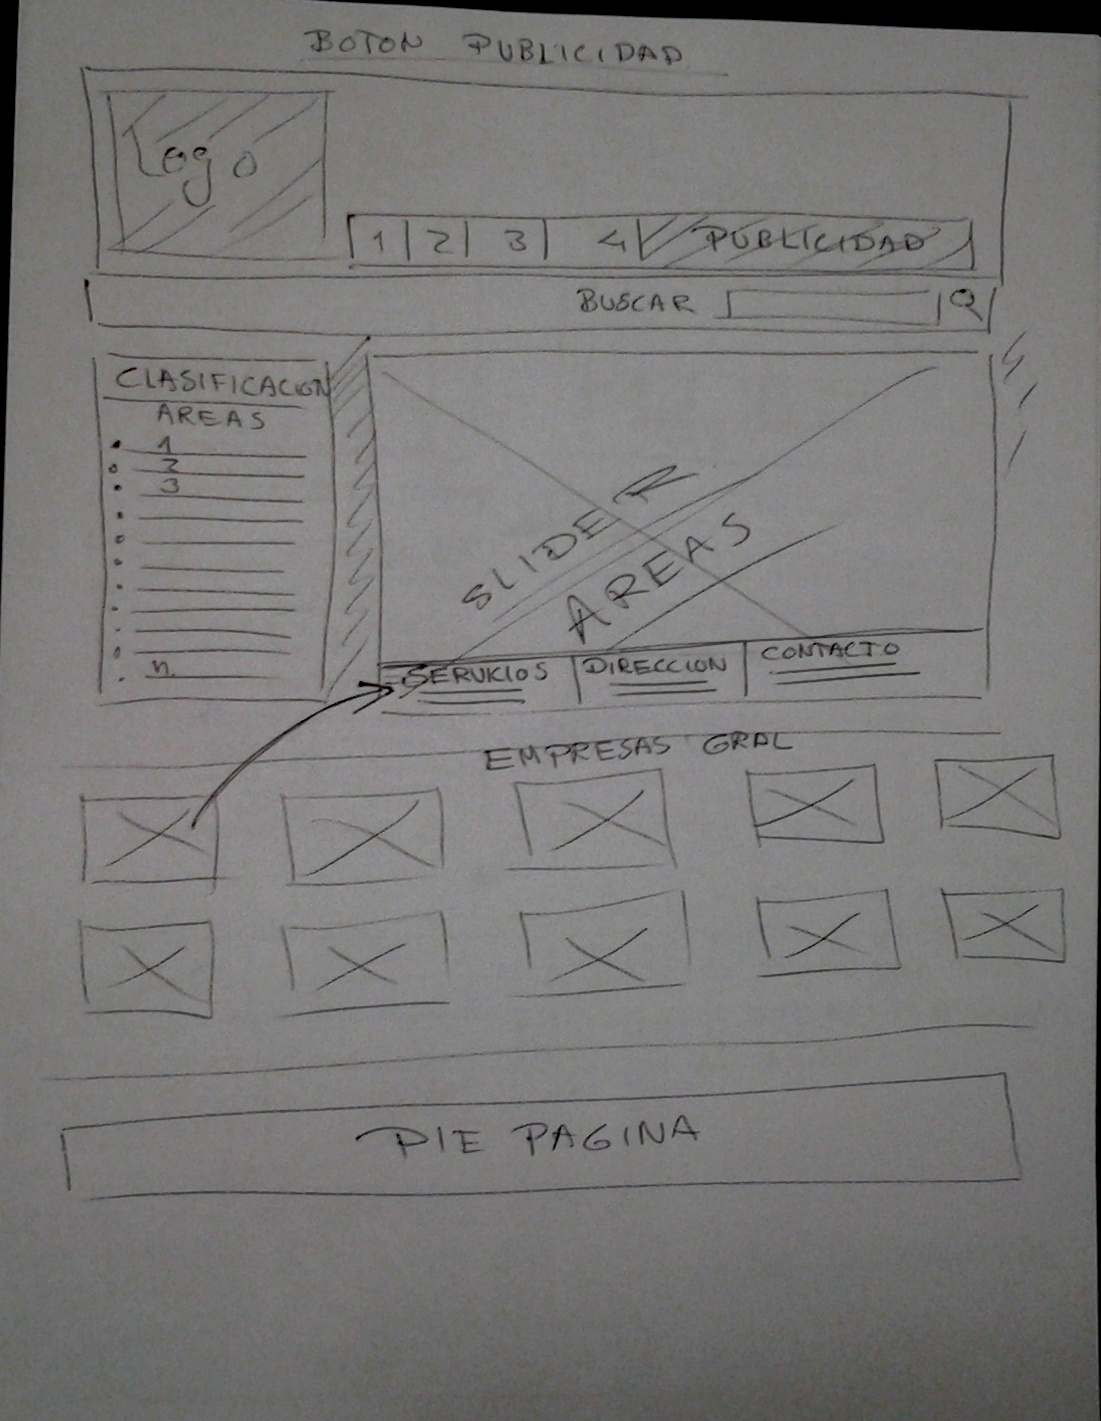 BOTON PUBLICIDAD
Logo
1 2 3 4 PUBLICIDAD
BUSCAR
CLASIFICACION
AREAS
1
2
3
n
SLIDER
AREAS
SERVICIOS DIRECCION CONTACTO
EMPRESAS GRAL
PIE PAGINA